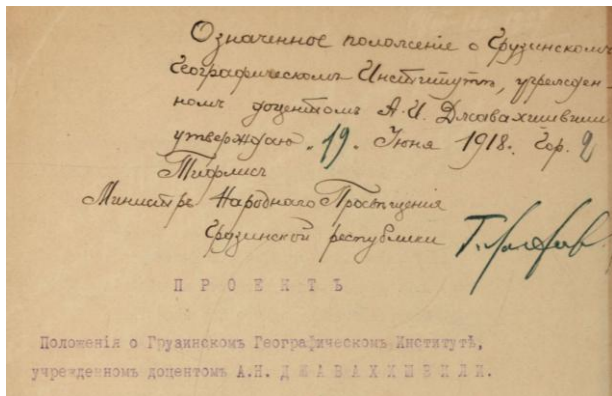 Означенное положеніе о Грузинскомъ
Географическомъ Институтѣ, учрежден-
номъ доцентомъ А.И. Джавахишвили
утверждаю „19„ Іюня 1918г. Гор.
Тифлисъ
Министръ Народнаго Просвѣщенія
Грузинской республики
ПРОЕКТЪ
Положенія о Грузинскомъ Географическомъ Институтѣ,
учрежденномъ доцентомъ А.Н. ДЖАВАХИШВИЛИ.